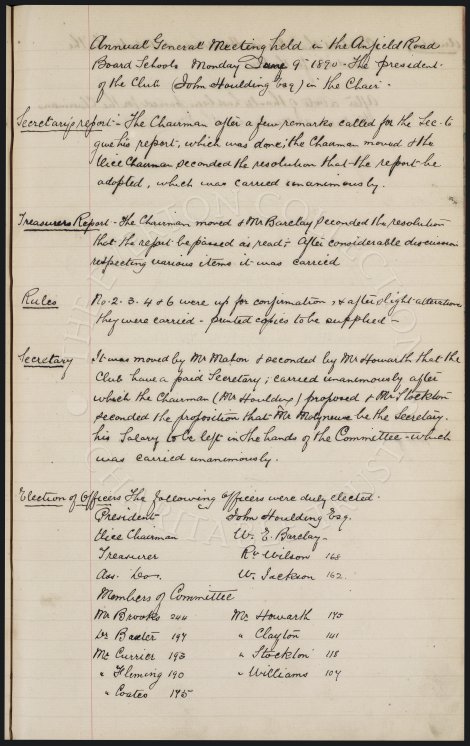 Annual General Meeting held in the Anfield Road
Board Schools Monday June 9th 1890 - The president
of the Club (John Houlding Esq) in the Chair -
Secretary's report - The Chairman after a few remarks called for the Sec. to
give his report, which was done; the Chairman moved & the
Vice Chairman seconded the resolution that the report be
adopted, which was carried unanimously.
Treasurers Report - The Chairman moved & Mr Barclay seconded the resolution
that the report be passed as read; After considerable discussion
respecting various items it was carried
Rules No. 2. 3. 4 & 6 were up for confirmation, & after slight alteration
they were carried - printed copies to be supplied -
Secretary It was moved by Mr Mahon & seconded by Mr Howarth that the
Club have a paid Secretary; carried unanimously after
which the Chairman (Mr Houlding) proposed & Mr Stockton
seconded the proposition that Mr Molyneux be the Secretary.
his Salary to be left in the hands of the Committee - which
was carried unanimously.
Election of Officers The following Officers were duly elected -
President John Houlding Esq.
Vice Chairman W. E. Barclay -
Treasurer Rd Wilson 168
Ass. Do. W. Jackson 162.
Members of Committee
Mr Brooks 244 Mr Howarth 145
Dr Baxter 197 " Clayton 141
Mr Currier 193 " Stockton 118
" Fleming 190 " Williams 104
" Coates 175